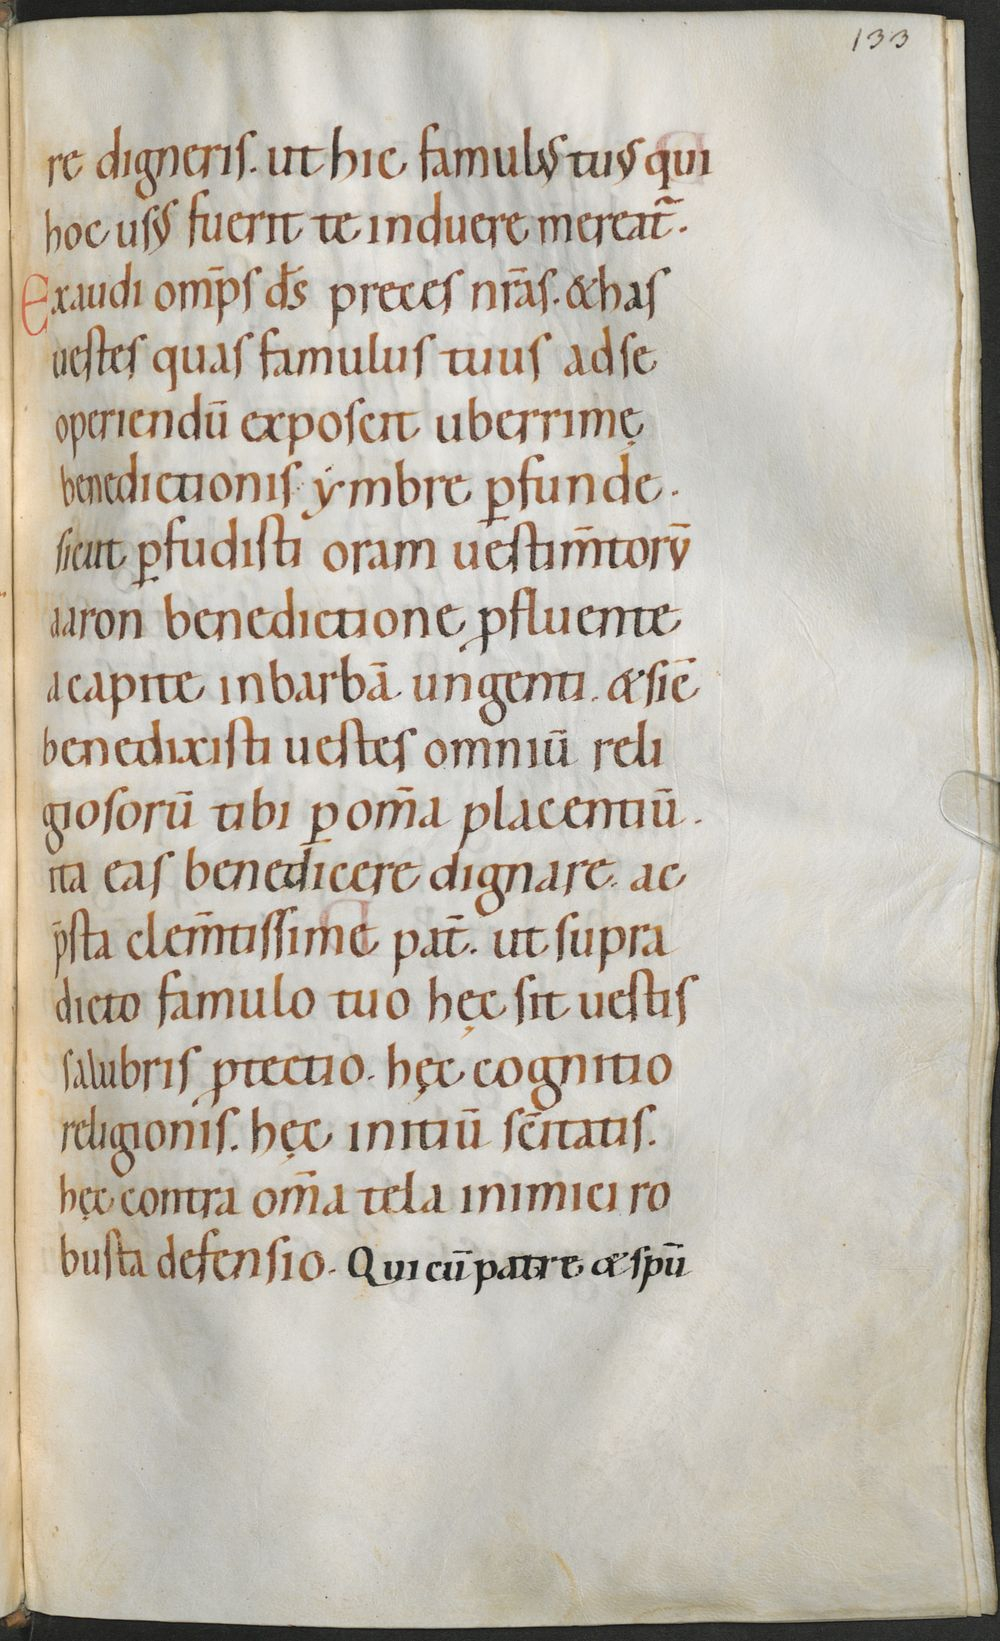 133
re digneris. ut hic famulus tuus qui
hoc usus fuerit te induere mereat̃.
Exaudi om̄ps d̄s preces nr̄as. & has
uestes quas famulus tuus adse
operiendū exposcit uberrimę
benedictionis ẏmbre ꝑfunde.
sicut ꝑfudisti oram uestim̄torū
aaron benedictione ꝓfluente
acapite inbarbā ungenti. & sic̄
benedixisti uestes omniū reli
giosorū tibi ꝑ om̄a placentiū.
ita eas benedicere dignare. ac
p̄sta clem̄tissime pat̄. ut supra
dicto famulo tuo hęc sit uestis
salubris ꝓtectio. hęc cognitio
religionis. hęc initiū sc̄itatis.
hęc contra om̄a tela inimici ro
busta defensio. Qui cū patre & spū